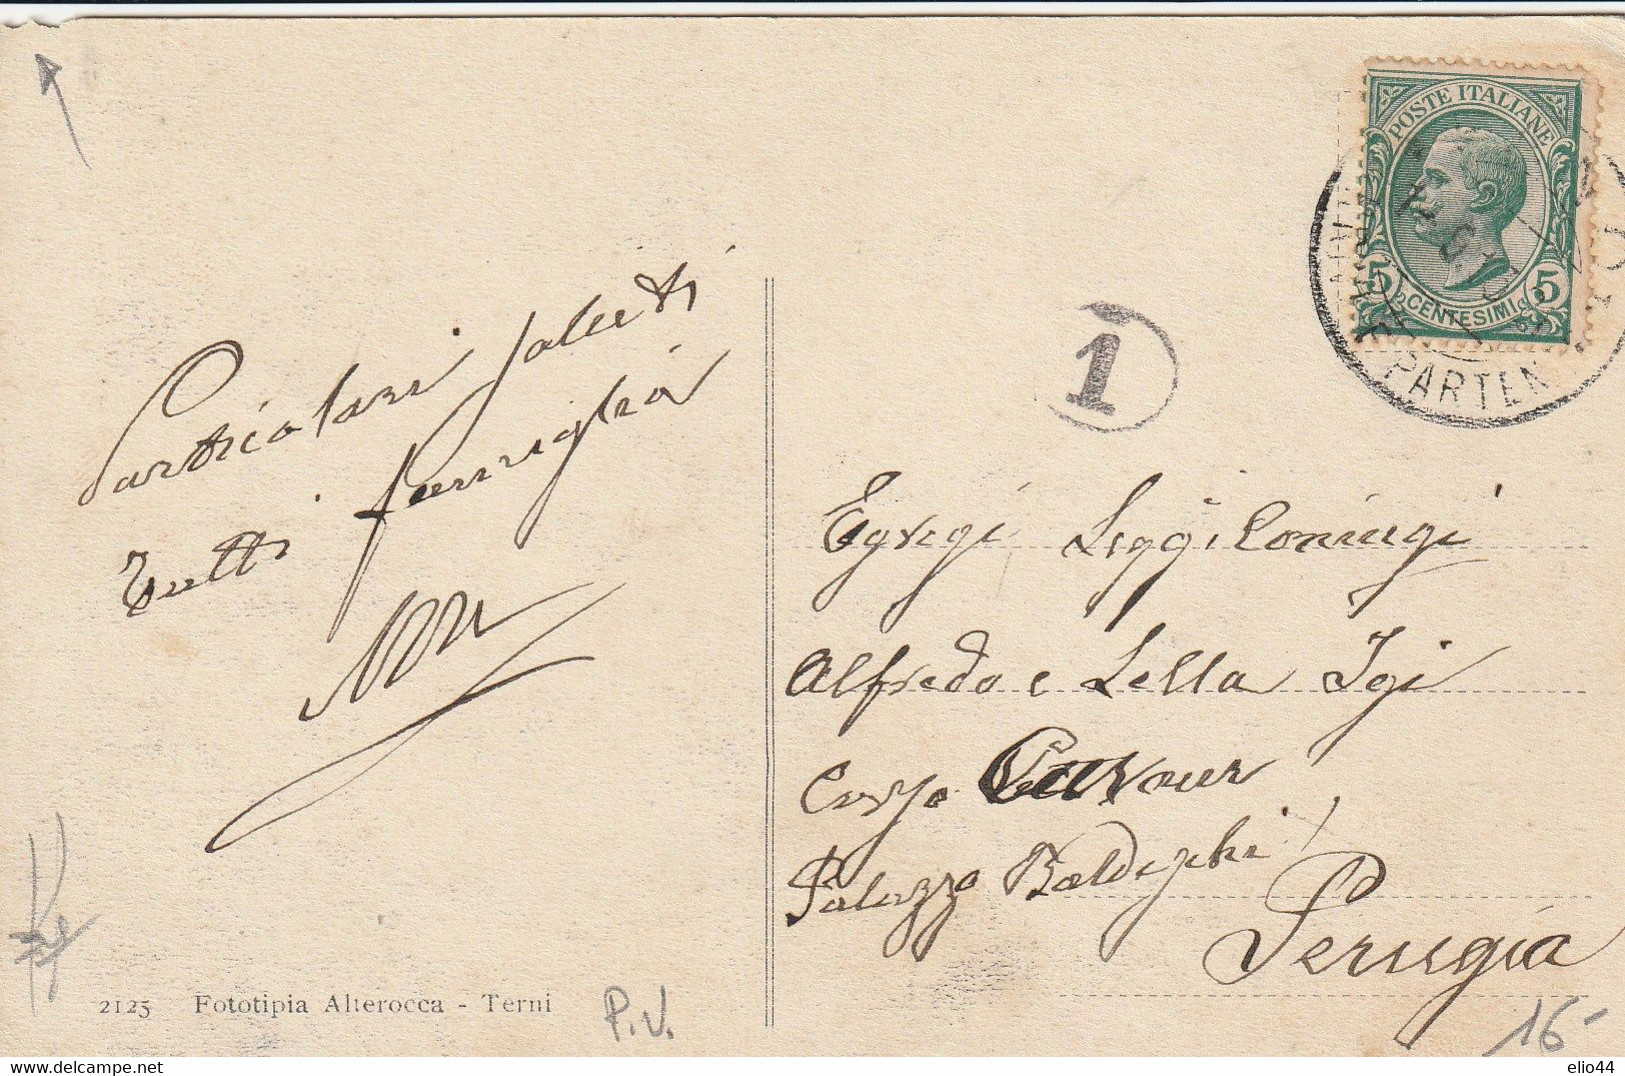 POSTE ITALIANE
5 CENTESIMI 5
PARTEN
1
Particolari saluti
tutti famiglia
Egregi Coniugi
Alfredo e Lella Igi
Corso Cavour
Palazzo Baldeschi
Perugia
2125 Fototipia Alterocca - Terni
P.V.
16-
elio44